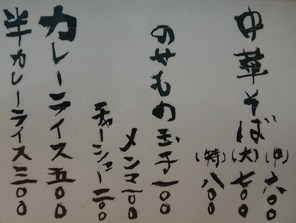 中華そば(中)六〇〇
(大)七〇〇
(特)八〇〇
のせもの玉子一〇〇
メンマ一〇〇
チャーシュー二〇〇
カレーライス五〇〇
半カレーライス三〇〇